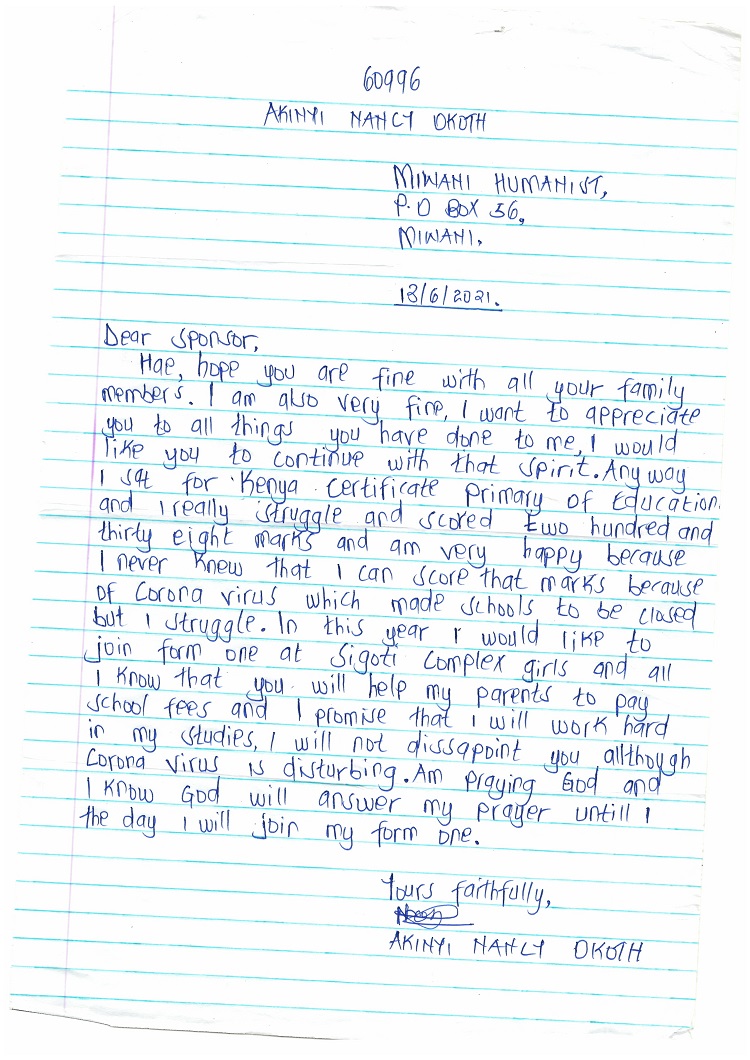 60996
AKINYI NANCY OKOTH
MIWANI HUMANIST,
P.O BOX 36,
MIWANI.
18/6/2021.
Dear sponsor,
Hae, hope you are fine with all your family
members. I am also very fine, I want to appreciate
you to all things you have done to me, I would
like you to continue with that spirit. Any way
I sat for Kenya Certificate Primary of Education.
and I really struggle and scored two hundred and
thirty eight marks and am very happy because
I never knew that I can score that marks because
of Corona virus which made schools to be closed
but I struggle. In this year I would like to
join form one at Sigoti Complex girls and all
I know that you will help my parents to pay
school fees and I promise that I will work hard
in my studies, I will not dissapoint you allthough
Corona virus is disturbing. Am praying God and
I know God will answer my prayer untill I
the day I will join my form one.
Yours faithfully,
AKINYI NANCY OKOTH